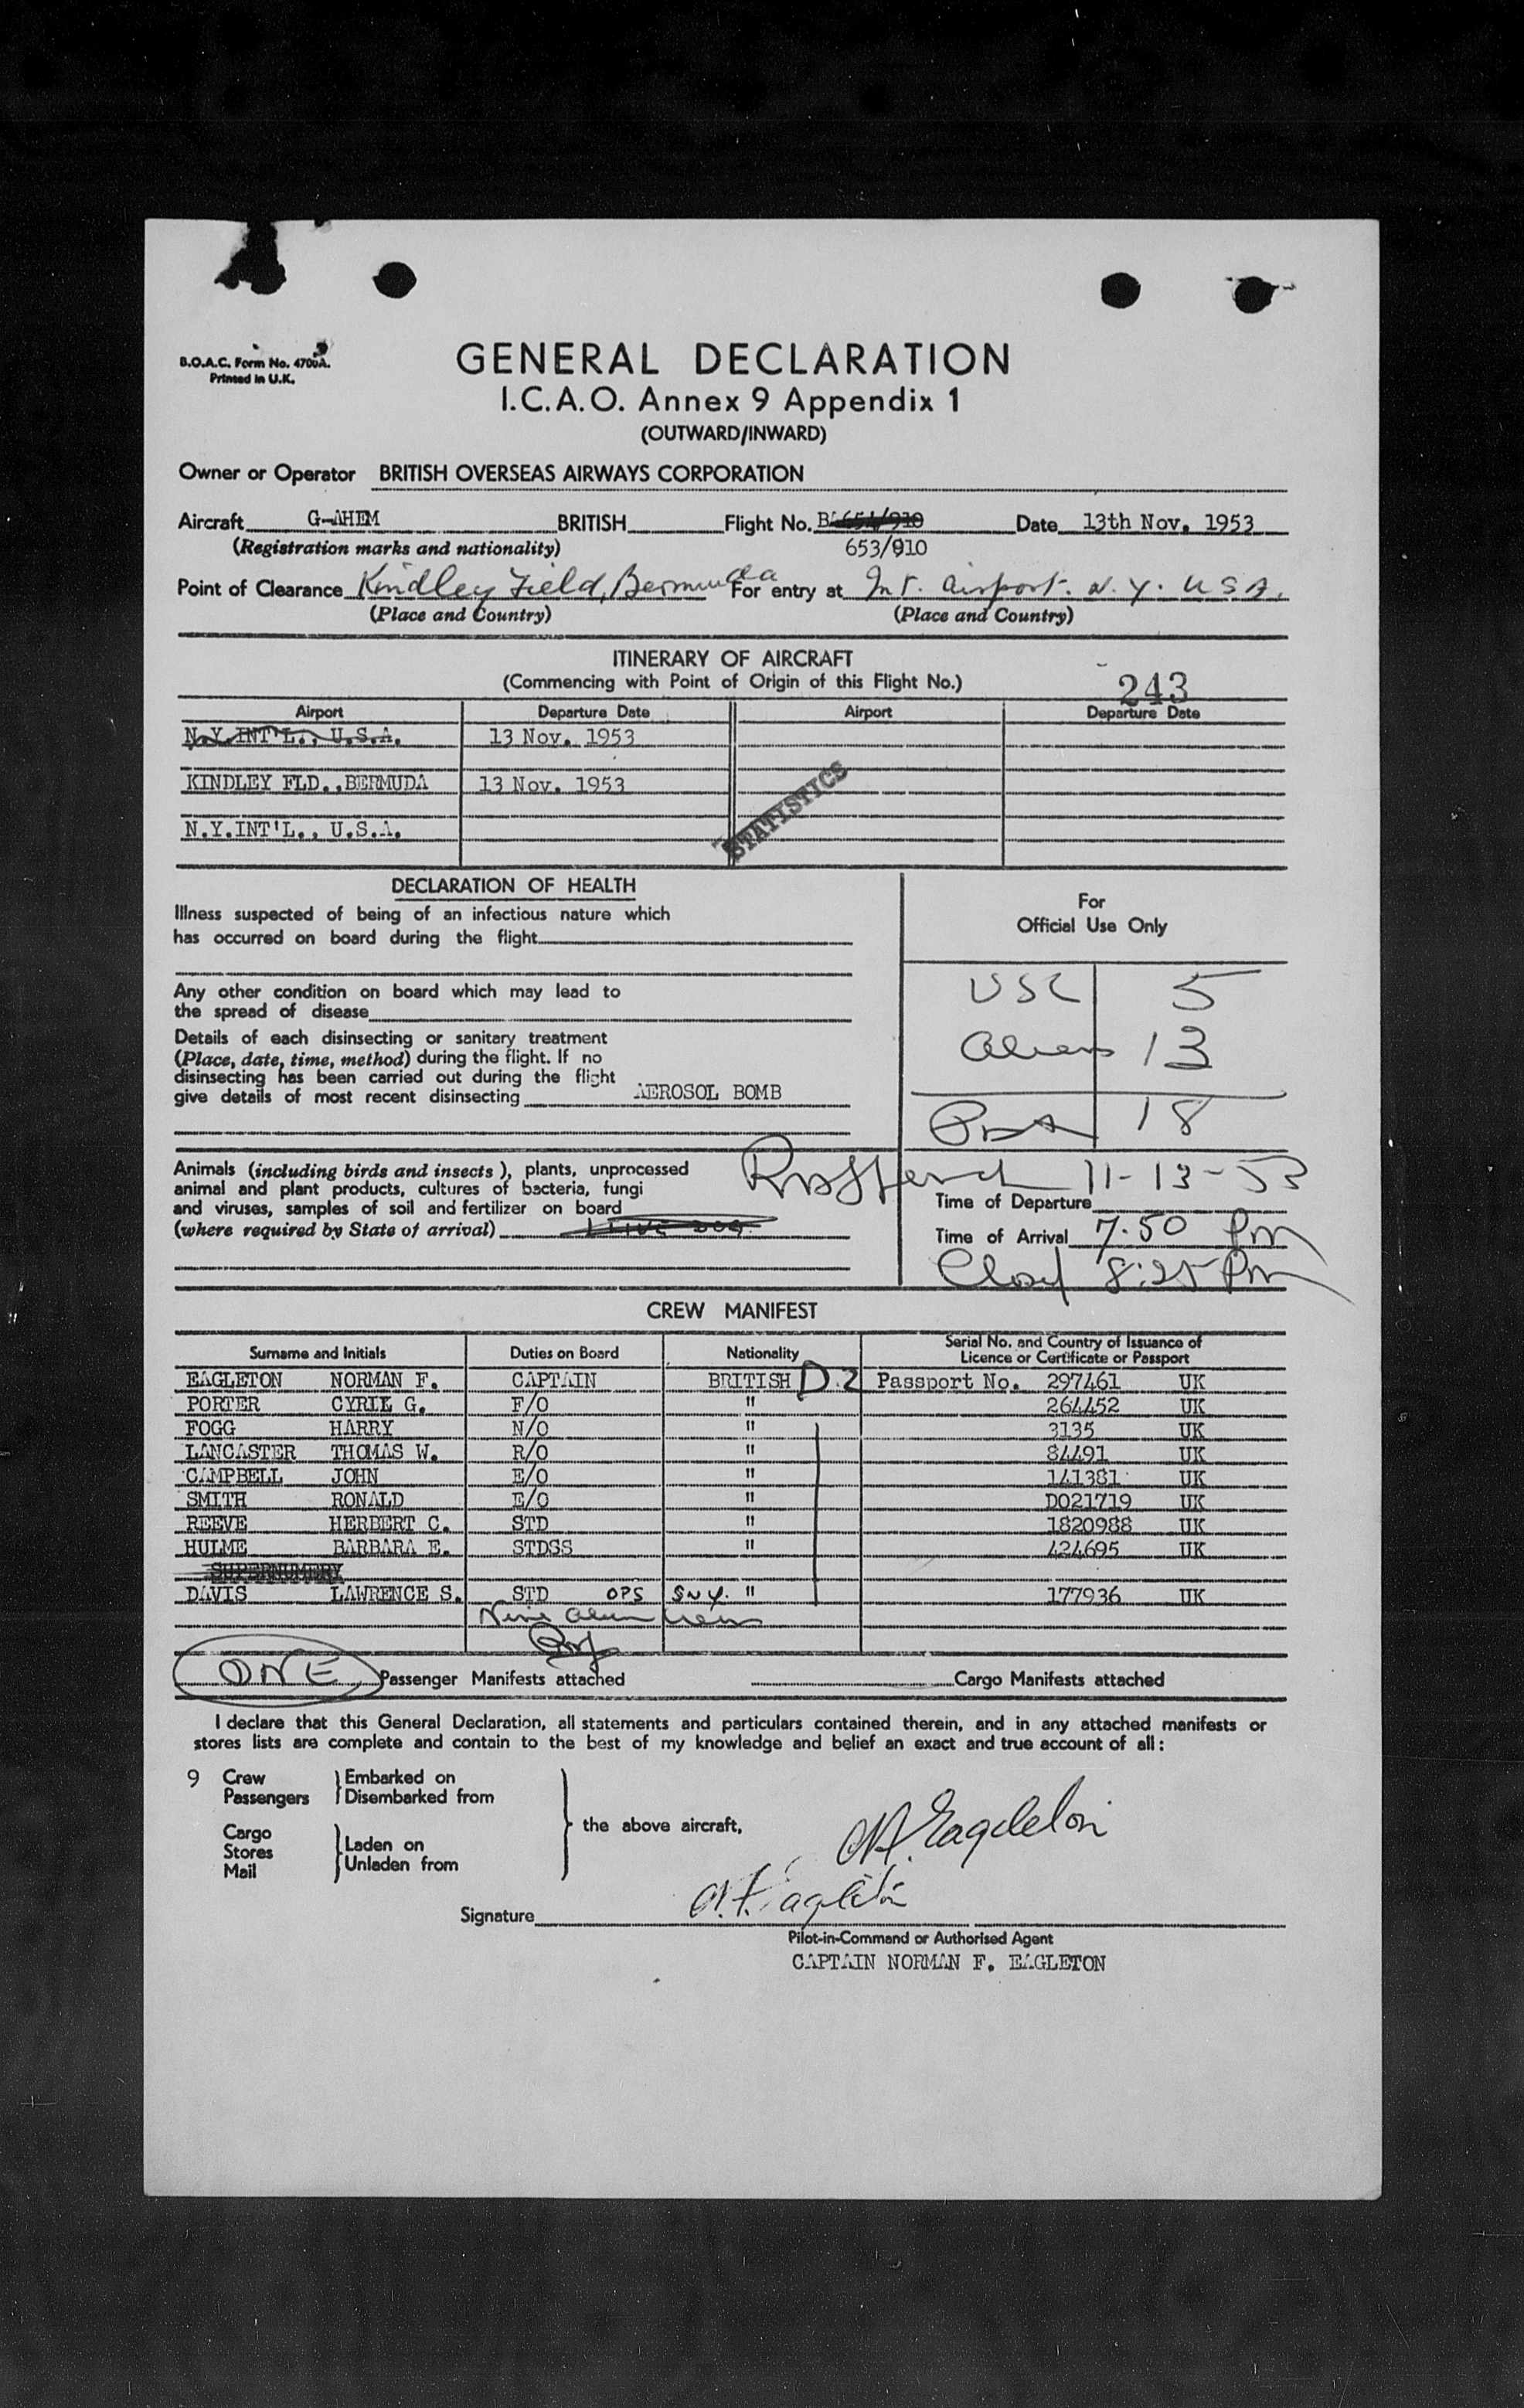 B.O.A.C. Form No. 4700A.
Printed in U.K.
GENERAL DECLARATION
I.C.A.O. Annex 9 Appendix 1
(OUTWARD/INWARD)
Owner or Operator BRITISH OVERSEAS AIRWAYS CORPORATION
Aircraft G-AHEM BRITISH Flight No. BA 654/910 Date 13th Nov. 1953
(Registration marks and nationality) 653/910
Point of Clearance Kindley Field, Bermuda For entry at Int. Airport. N.Y. USA.
(Place and Country) (Place and Country)
ITINERARY OF AIRCRAFT
(Commencing with Point of Origin of this Flight No.) 243
Airport Departure Date Airport Departure Date
N.Y.INT'L., U.S.A. 13 Nov. 1953
KINDLEY FLD., BERMUDA 13 Nov. 1953
STATISTICS
N.Y.INT'L., U.S.A.
DECLARATION OF HEALTH
Illness suspected of being of an infectious nature which
has occurred on board during the flight
Any other condition on board which may lead to
the spread of disease
Details of each disinsecting or sanitary treatment
(Place, date, time, method) during the flight. If no
disinsecting has been carried out during the flight
give details of most recent disinsecting AEROSOL BOMB
For
Official Use Only
USC 5
Aliens 13
18
Animals (including birds and insects), plants, unprocessed
animal and plant products, cultures of bacteria, fungi
and viruses, samples of soil and fertilizer on board
(where required by State of arrival) 1 LIVE DOG
11-13-53
Time of Departure
Time of Arrival 7.50 Pm
Closed 8:25 Pm
CREW MANIFEST
Surname and Initials Duties on Board Nationality Serial No. and Country of Issuance of Licence or Certificate or Passport
EAGLETON NORMAN F. CAPTAIN BRITISH D.2 Passport No. 297461 UK
PORTER CYRIL G. F/O " 264452 UK
FOGG HARRY N/O " 3135 UK
LANCASTER THOMAS W. R/O " 84491 UK
CAMPBELL JOHN E/O " 141381 UK
SMITH RONALD E/O " D021719 UK
REEVE HERBERT C. STD " 1820988 UK
HULME BARBARA E. STDSS " 424695 UK
SUPERNUMERY
DAVIS LAWRENCE S. STD OPS SNY. " 177936 UK
Nine Alien Crew
ONE Passenger Manifests attached Cargo Manifests attached
I declare that this General Declaration, all statements and particulars contained therein, and in any attached manifests or
stores lists are complete and contain to the best of my knowledge and belief an exact and true account of all:
9 Crew Embarked on
Passengers Disembarked from
the above aircraft,
Cargo
Stores Laden on
Mail Unladen from
N.F. Eagleton
Signature N.F. Eagleton
Pilot-in-Command or Authorised Agent
CAPTAIN NORMAN F. EAGLETON